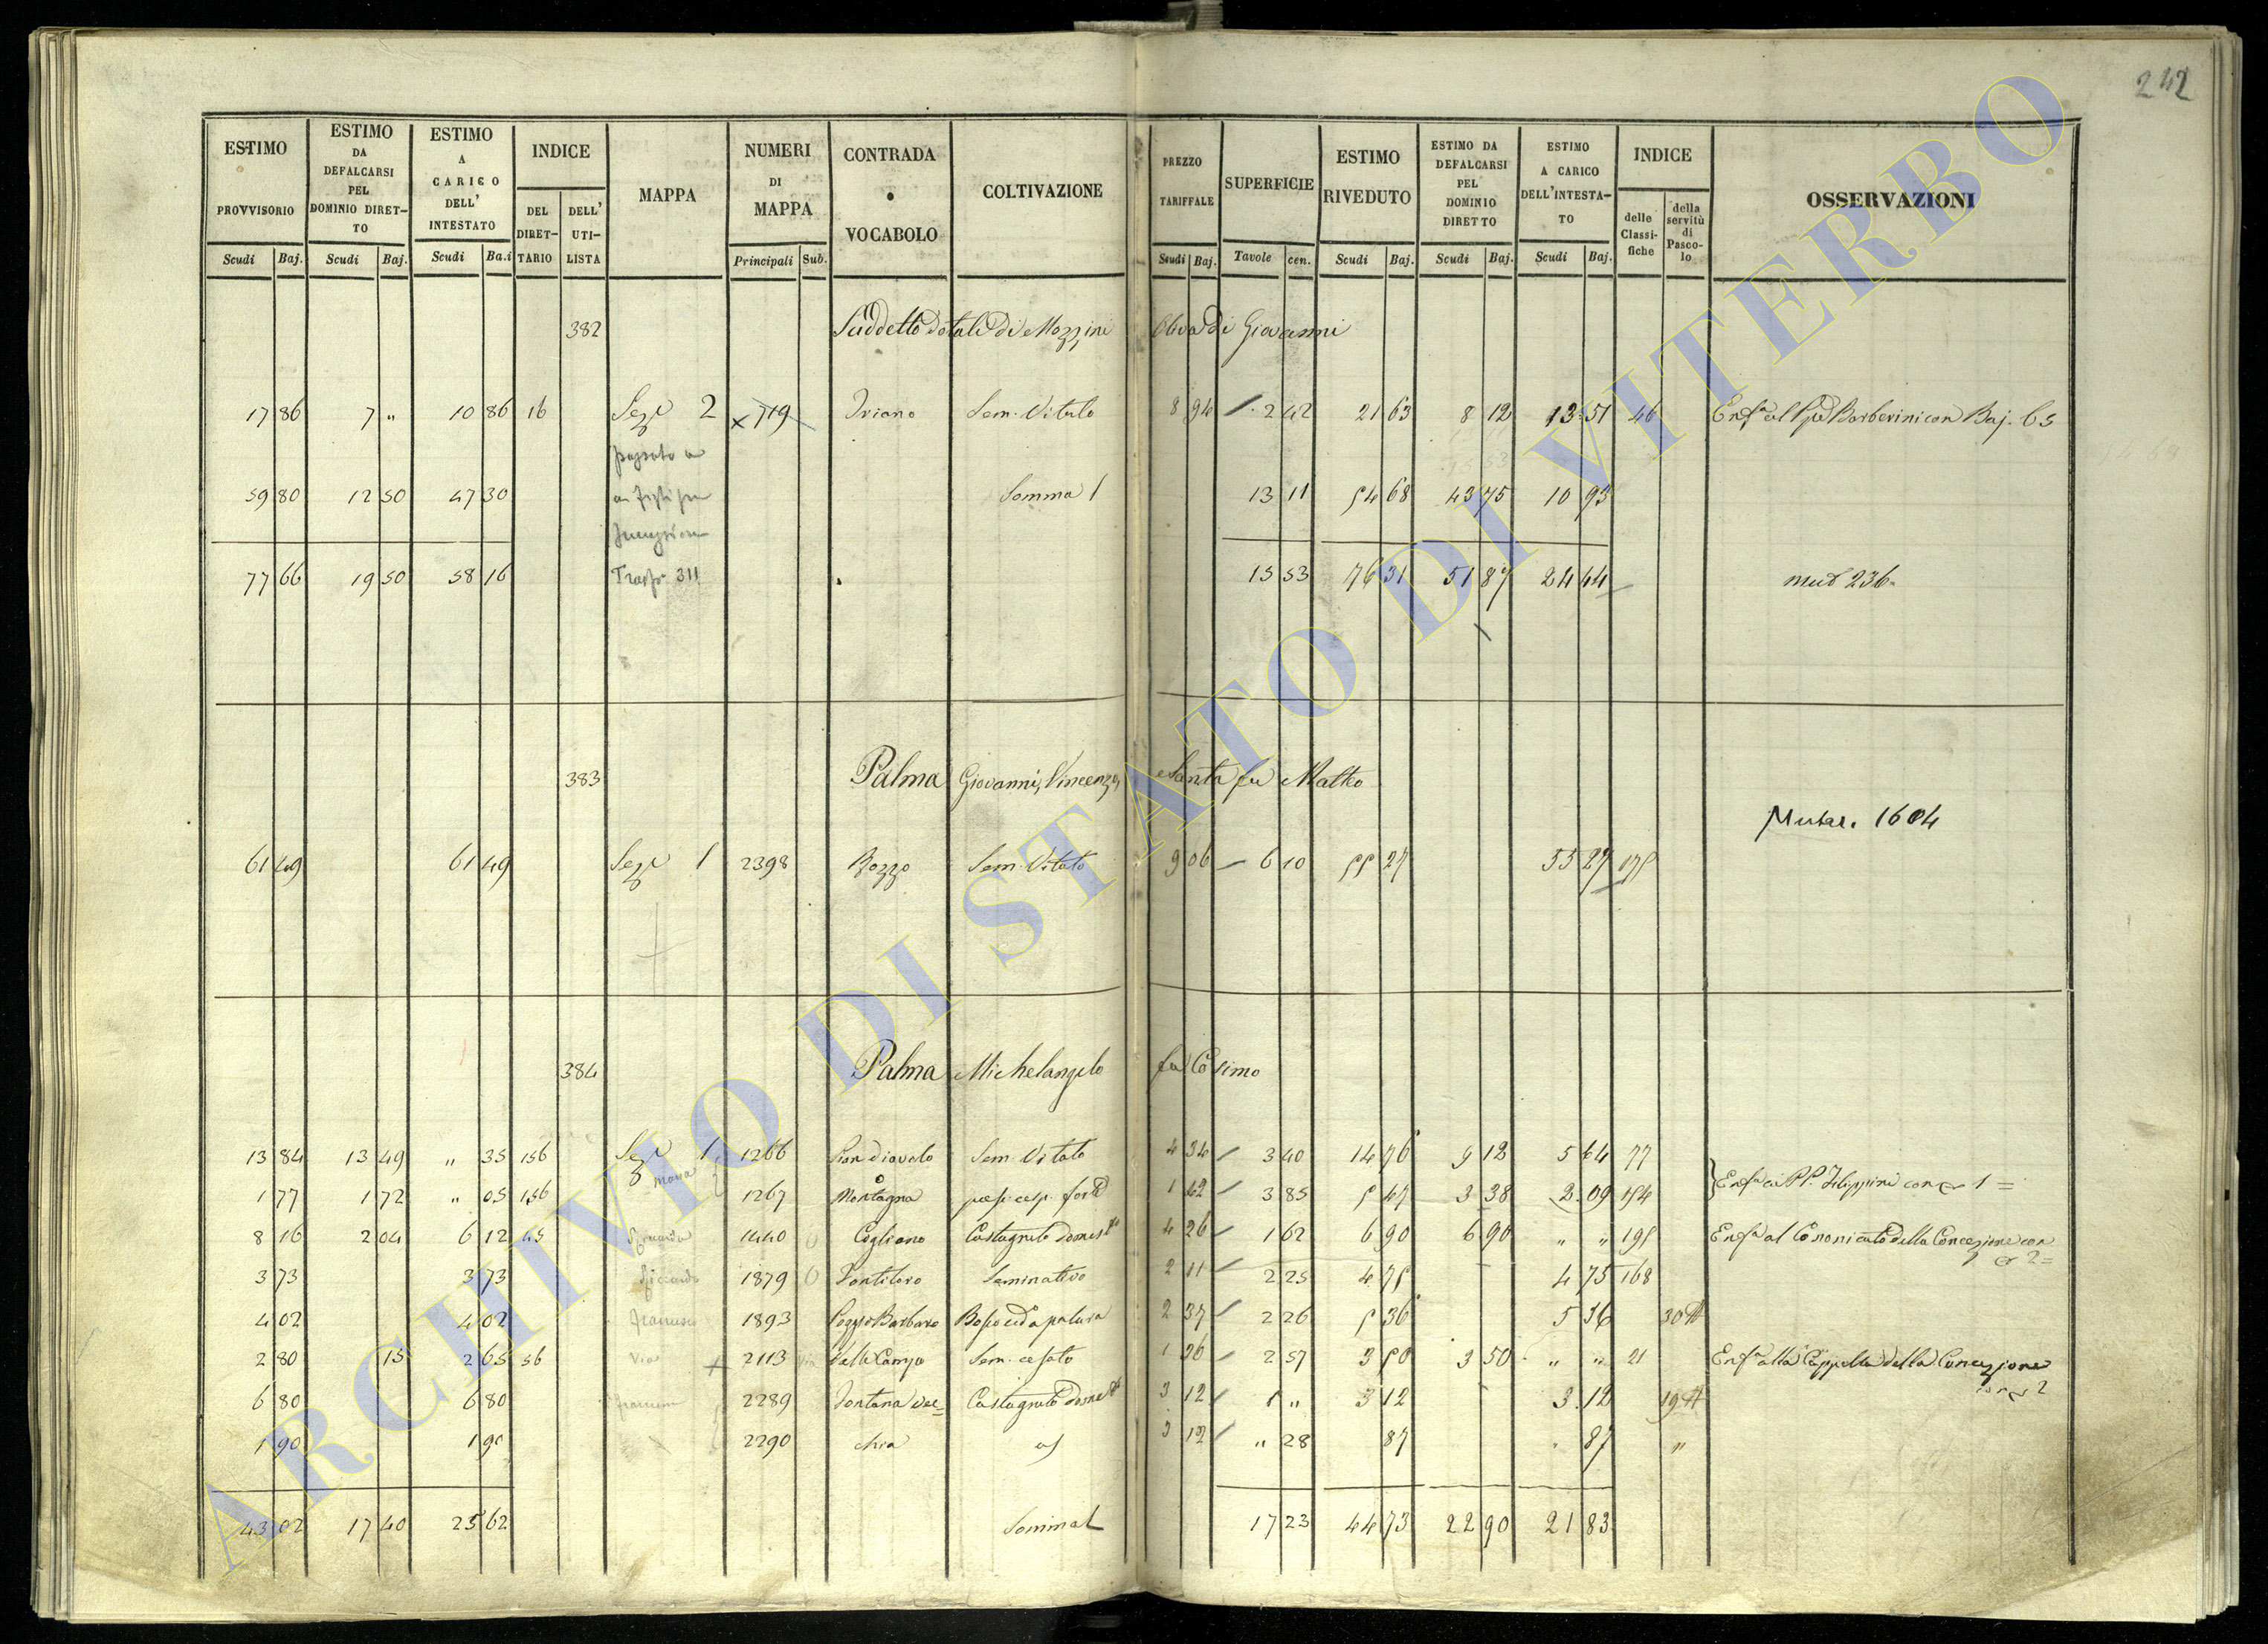 242
ESTIMO PROVVISORIO Scudi Baj. ESTIMO DA DEFALCARSI PEL DOMINIO DIRET-TO Scudi Baj. ESTIMO A CARICO DELL' INTESTATO Scudi Ba.i INDICE DEL DIRET-TARIO DELL' UTI-LISTA MAPPA NUMERI DI MAPPA Principali Sub. CONTRADA o VOCABOLO COLTIVAZIONE PREZZO TARIFFALE Scudi Baj. SUPERFICIE Tavole cen. ESTIMO RIVEDUTO Scudi Baj. ESTIMO DA DEFALCARSI PEL DOMINIO DIRETTO Scudi Baj. ESTIMO A CARICO DELL'INTESTA-TO Scudi Baj. INDICE delle Classi-fiche della servitù di Pasco-lo OSSERVAZIONI
382 Suddetto dotali di Mozzini Oliva di Giovanni
17 86 7 " 10 86 16 Seze 2 x 719 Triano Sem. Vitato 8 94 2 42 21 63 8 12 13 51 46 Enfa al Barberini con Baj. 65
passato a
59 80 12 50 47 30 Somma 1 13 11 54 68 43 75 10 93
77 66 19 50 58 16 Trasp. 311 15 53 76 31 51 87 24 44 mut 236
383 Palma Giovanni, Vincenzo, Santa fu Matteo
Mutaz. 1604
61 49 61 49 Seze 1 2398 Bozzo Sem. Vitato 9 06 6 10 55 27 55 27 175
384 Palma Michelangelo fu Cosimo
13 84 13 49 " 35 156 Sez 1 1266 Pian diavolo Sem. Vitato 4 34 3 40 14 76 9 12 5 64 77
1 77 1 72 " 05 156 Maria 1267 Montagna pasc. cesp. forte 1 42 3 85 5 47 3 38 2 09 154 Enfa ai PP. Filippini con 1 =
8 16 2 04 6 12 45 1440 Cogliano Castagneto domest 4 26 1 62 6 90 6 90 " " 195 Enfa al Canonicato della Concezione con 2 =
3 73 3 73 1879 Fontiloro Seminativo 2 11 2 25 4 75 4 75 168
4 02 4 02 Francesco 1893 Poggio Barbaro Bosco ced a pastura 2 37 2 26 5 36 5 36 30
2 80 15 2 65 56 2113 Valle Campo Sem. cesato 1 36 2 57 3 50 3 50 " " 21 Enfa alla Cappella della Concezione con 2
6 80 6 80 2289 Fontana vec= Castagneto domest 3 12 1 " 3 12 3 12 19
1 90 1 90 2290 chia 3 12 " 28 87 87 "
43 02 17 40 25 62 Somma 17 23 44 73 22 90 21 83
ARCHIVIO DI STATO DI VITERBO